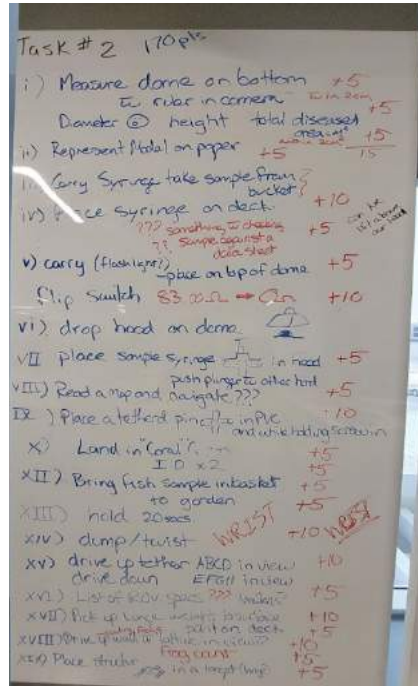 Task # 2 170pts
i) Measure dome on bottom +5
ruler in camera +5
Diameter @ height total diseased area +5
ii) Represent Model on paper +5 15
Carry Syringe take sample from bucket?
iv) Place syringe on deck +10
??? something to checking +5
?? sample against a data sheet
v) carry (flashlight?) +5
place on top of dome
flip switch +10
vi) drop hood on dome
VII place sample syringe in hood +5
push plunger to other hood
VIII) Read a map and navigate ??? +5
IX) Place a tetherd pin in PVC 10
and while holding screw in
X) Land in "Coral" +5
ID x2 +5
XII) Bring fish sample in basket +5
to garden +5
XIII) hold 20secs WRIST WRIST
XIV) dump/twist +10
XV) drive up tether ABCD in view +10
drive down EFGH in view
XVI) List of ROV specs ??? +5
XVII) Pick up Large weights to surface +10
put it on deck +5
XVIII) Drive up lattice in view +10
frog count +5
XIX) Place +5
in a